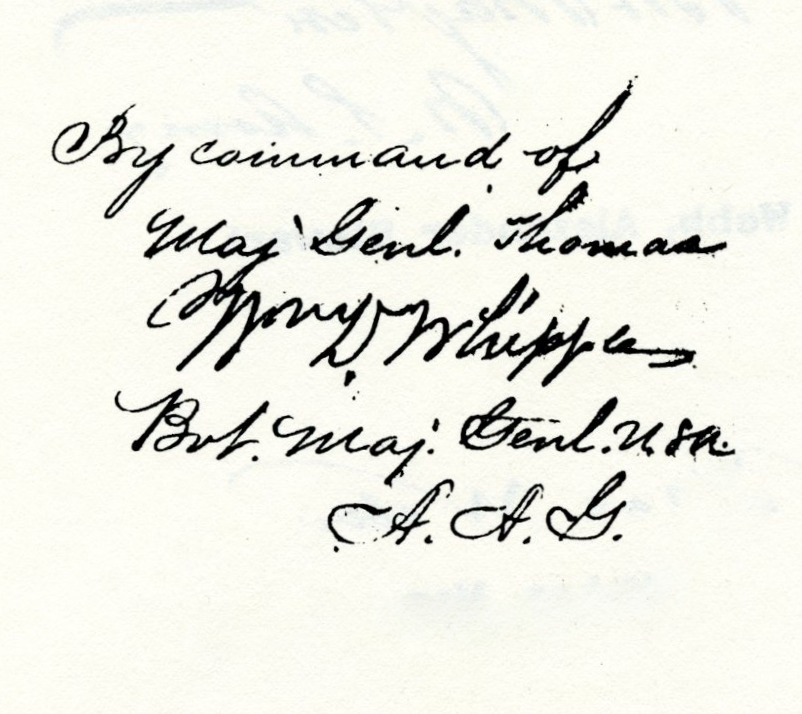 By command of
Maj Genl. Thomas
Wm D Whipple
Bvt. Maj. Genl. U.S.A.
A. A. G.